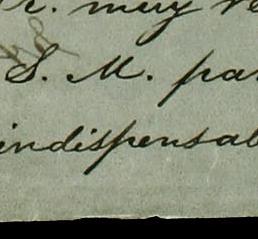 r. muy re
S. M. par
indispensab